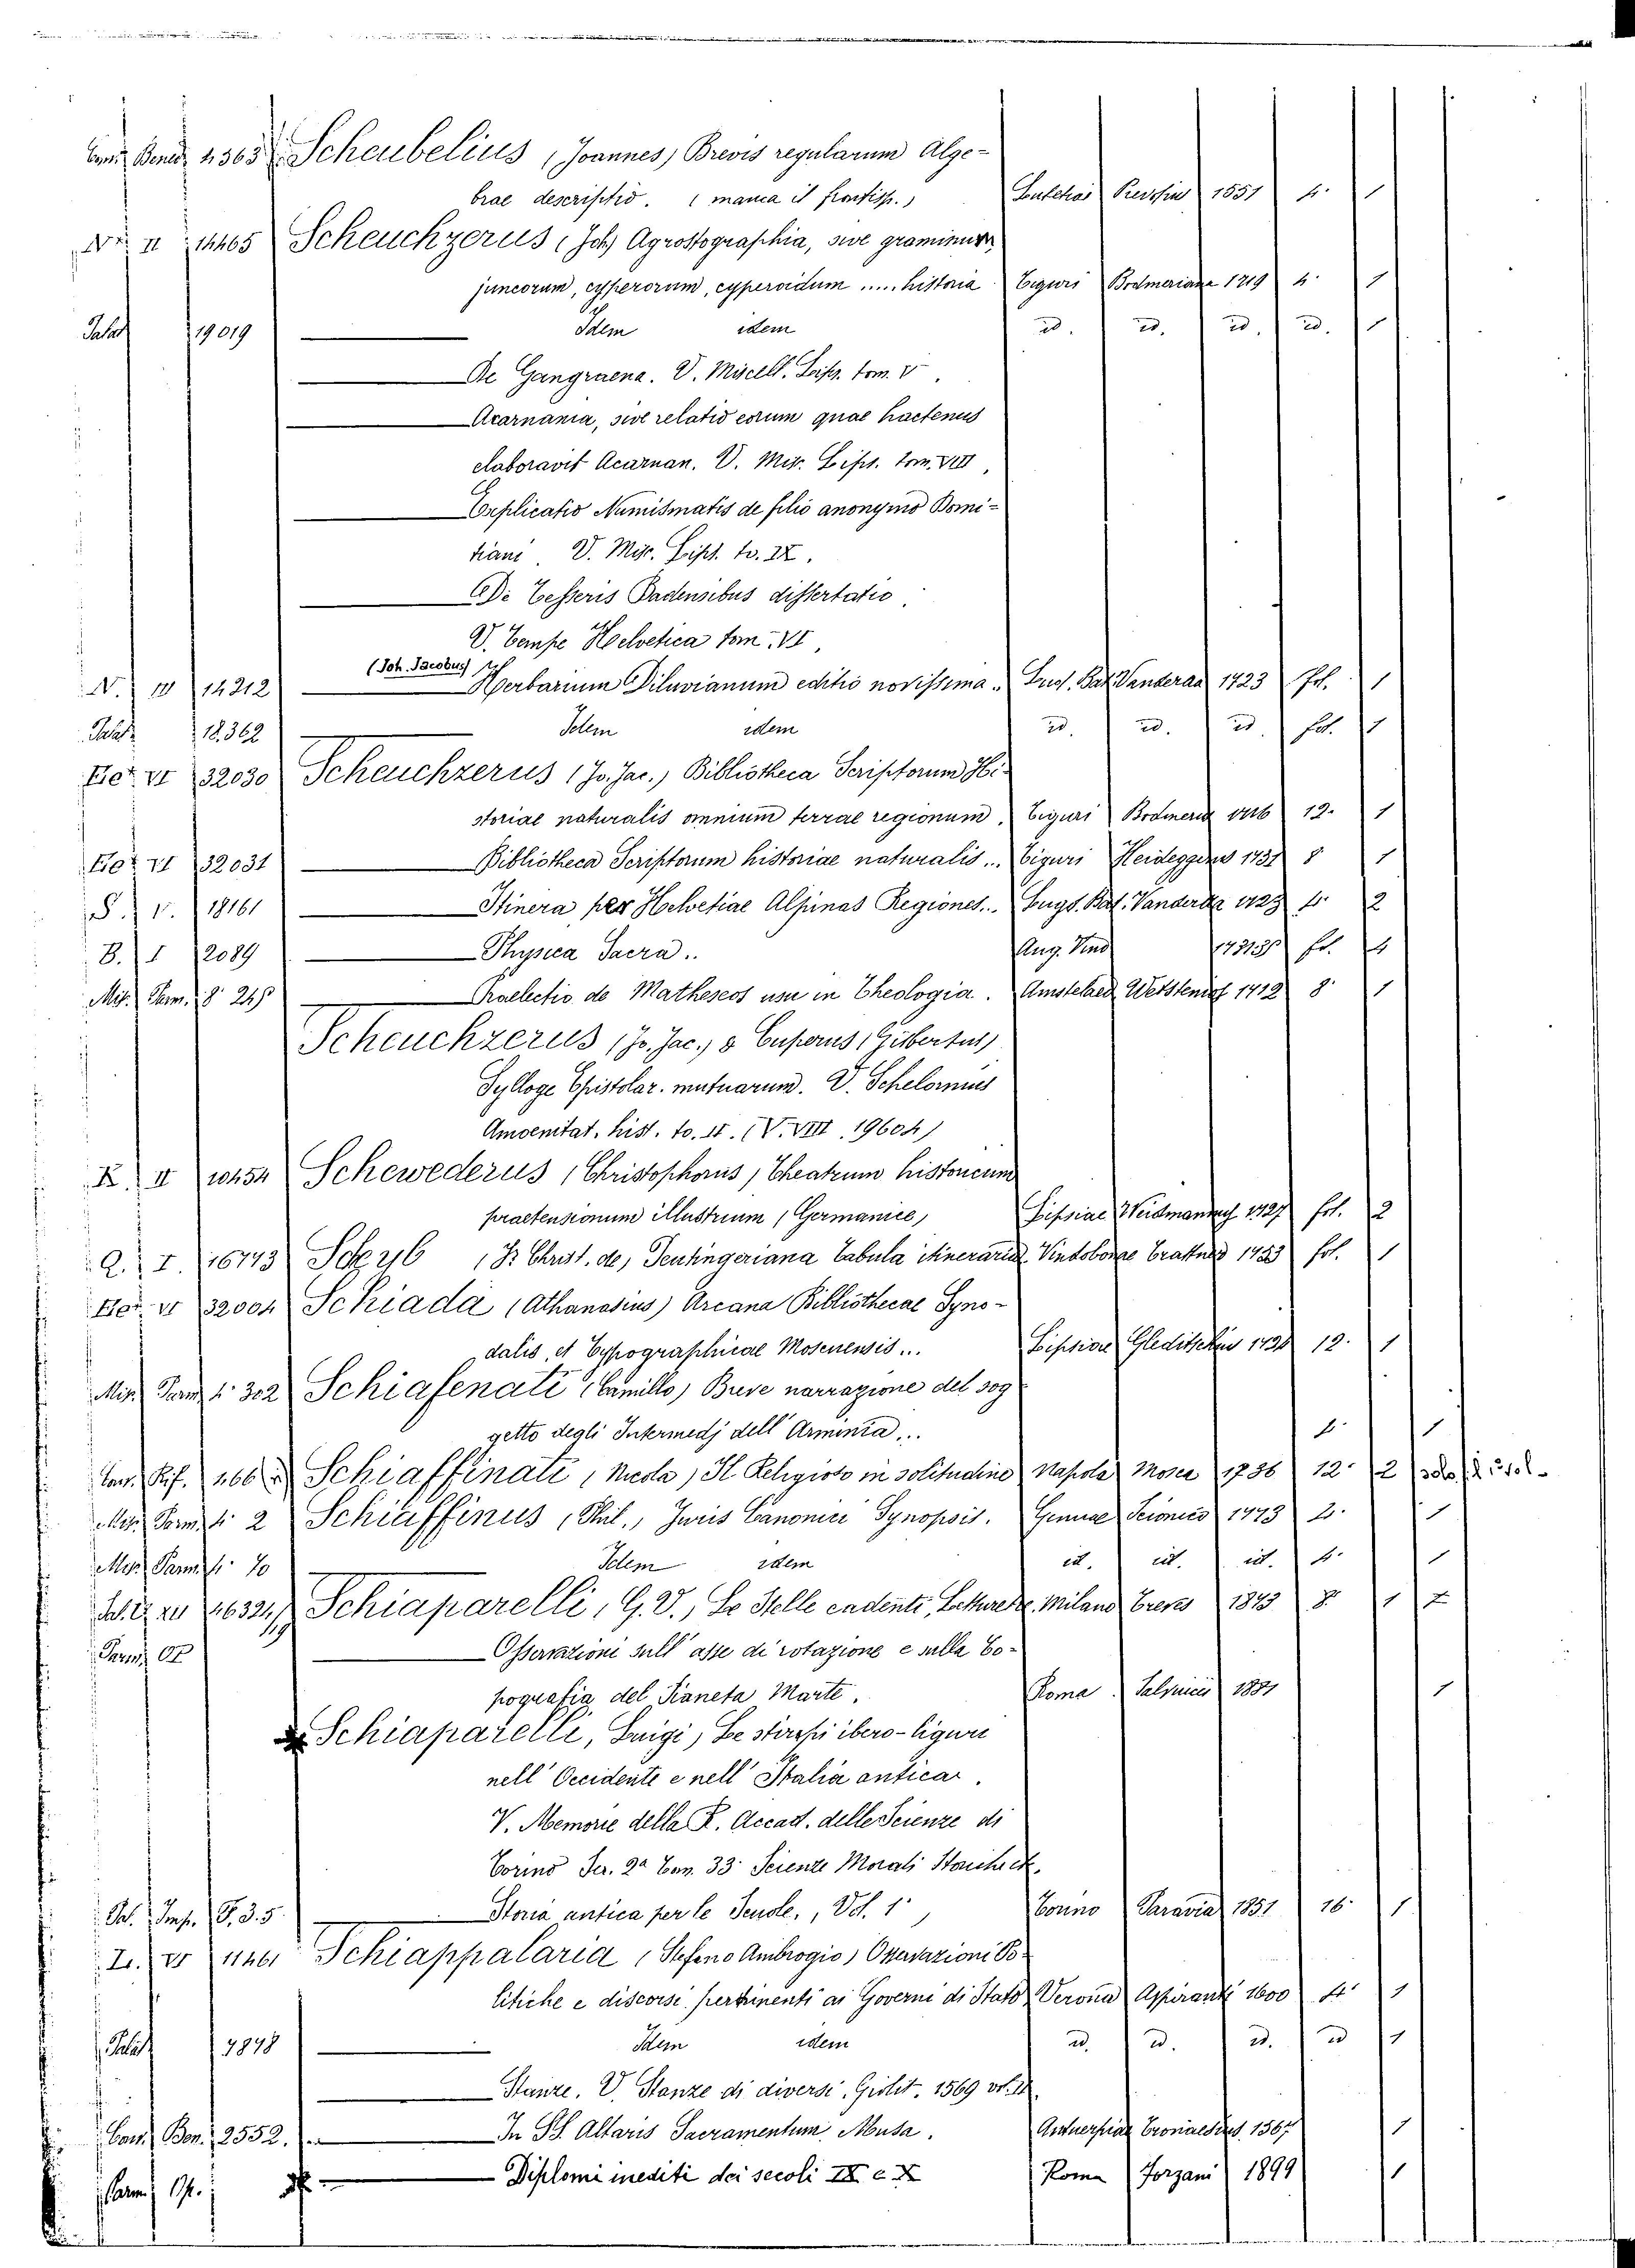 4365 Scheubelius (Joannes) Brevis regularum Alge-
brae descriptio. (manca il frontisp.) 1551 4. 1
II 14465 Scheuchzerus (Joh) Agrostographia, sive graminum,
juncorum, cyperorum, cyperoidum ..... historia Tiguri Bodmeriana 1719 4. 1
19019 Idem idem id. id. id. id. 1
De Gangraena. V. Miscell. Lips. tom. V.
Acarnania, sive relatio eorum quae hactenus
elaboravit Acarnan. V. Mis. Lips. Tom. VIII,
Explicatio Numismatis de filio anonymo Domi-
tiani. V. Mis. Lips. to. IX.
De Tesseris Badensibus dissertatio.
V. Tempe Helvetica tom. VI,
N. IV 14212 (Joh. Jacobus) Herbarium Diluvianum editio novissima. Lugd. Bat. Vanderaa 1723 fol. 1
18.362 Idem idem id. id. id. fol. 1
VI 32030 Scheuchzerus (Jo. Jac.) Bibliotheca Scriptorum Hi-
storiae naturalis omnium terrae regionum. Tiguri 12. 1
VI 32031 Bibliotheca Scriptorum historiae naturalis... Tiguri Heideggerus 1731 8 1
S. V. 18161 Itinera per Helvetiae Alpinas Regiones... Lugd. Bat. Vanderaa 1723 4. 2
B. I 2089 Physica Sacra.. Aug. Vind fol. 4
Mis. Parm. 8. 24 Praelectio de Matheseos usu in Theologia. Amstelaed Wetstenios 1712 8. 1
Scheuchzerus (Jo. Jac.) & Cuperus (Gisbertus)
Sylloge Epistolar. mutuarum. V. Schelornius
Amoenitat. hist. to. II. (V. VIII. 19604)
K. II 10454 Schewederus (Christophorus) Theatrum historicum
praetensionum illustrium (Germanice) Lipsiae 1727 fol. 2
Q. I. 16773 Scheyb (Fr. Christ. de) Peutingeriana Tabula itineraria Vindobonae Trattner 1753 fol. 1
VI 32004 Schiada (Athanasius) Arcana Bibliothecae Syno-
dalis, et Typographicae Moscuensis... Lipsiae 12. 1
Mis. Parm. 4. 302 Schiafenati (Camillo) Breve narrazione del sog
getto degli Intermedj dell' Arminia... 4. 1
Schiaffinati (Nicola) Il Religioso in solitudine Napola Mosca 1736 12. 2
Mis. Parm. 4. 2 Schiaffinus (Phil.) Juris Canonici Synopsis. Genuae Scionico 1773 4. 1
Mis. Parm. 4. 70 Idem idem id. id. id. 4. 1
Schiaparelli, G. V., Le Stelle cadenti, Letture Milano Treves 1873 8. 1
Osservazioni sull' asse di rotazione e sulla to-
pografia del Pianeta Marte. Roma Salviucci 1881 1
Schiaparelli, Luigi, Le stirpi ibero-liguri
nell' Occidente e nell' Italia antica.
V. Memorie della R. Accad. delle Scienze di
Torino Ser. 2a Tom. 33. Scienze Morali Storiche etc.
Storia antica per le Scuole., Vol. 1. Torino Paravia 1851 16. 1
VI 11461 Schiappalaria (Stefano Ambrogio) Osservazioni Po-
litiche e discorsi pertinenti ai Governi di Stato Verona Aspiranti 1600 4. 1
Idem idem id. id. id. id 1
Stanze. V. Stanze di diversi. Giolit. 1569 vol. II
Ben. 2552. In SS. Altaris Sacramentum Musa. Antuerpiae 1567 1
Diplomi inediti dei secoli IX e X Roma Forzani 1899 1